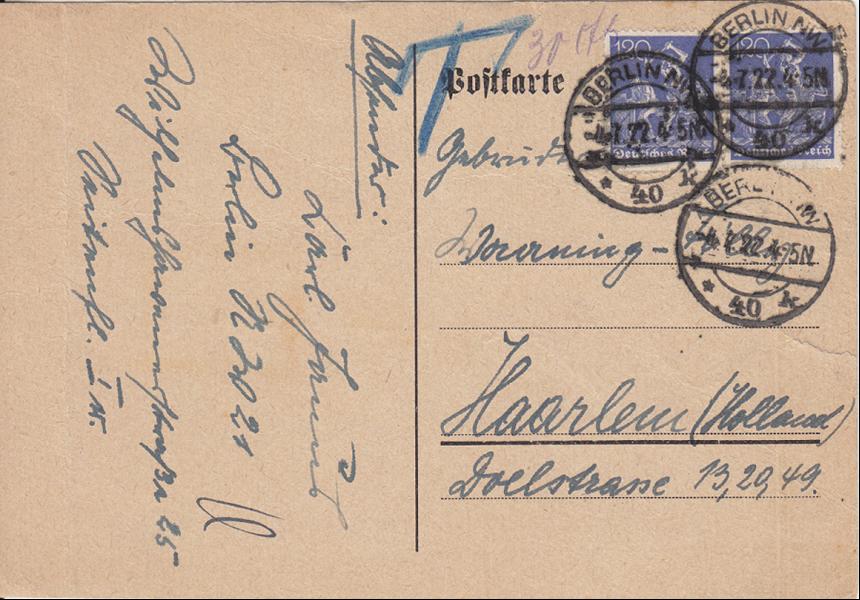 Postkarte
30 cts
120
120
Deutsches Reich
Deutsches Reich
BERLIN NW
4.7.22.4-5N
* 40 k
BERLIN NW
4.7.22.4-5N
* 40 k
BERLIN NW
4.7.22.4-5N
* 40 k
T
Gebrüder
Haarlem (Holland)
Doelstrasse 13, 29, 49.
Absender:
Karl
Berlin NW 21
Wilhelmshavenerstraße 25
Seitenfl. I r.